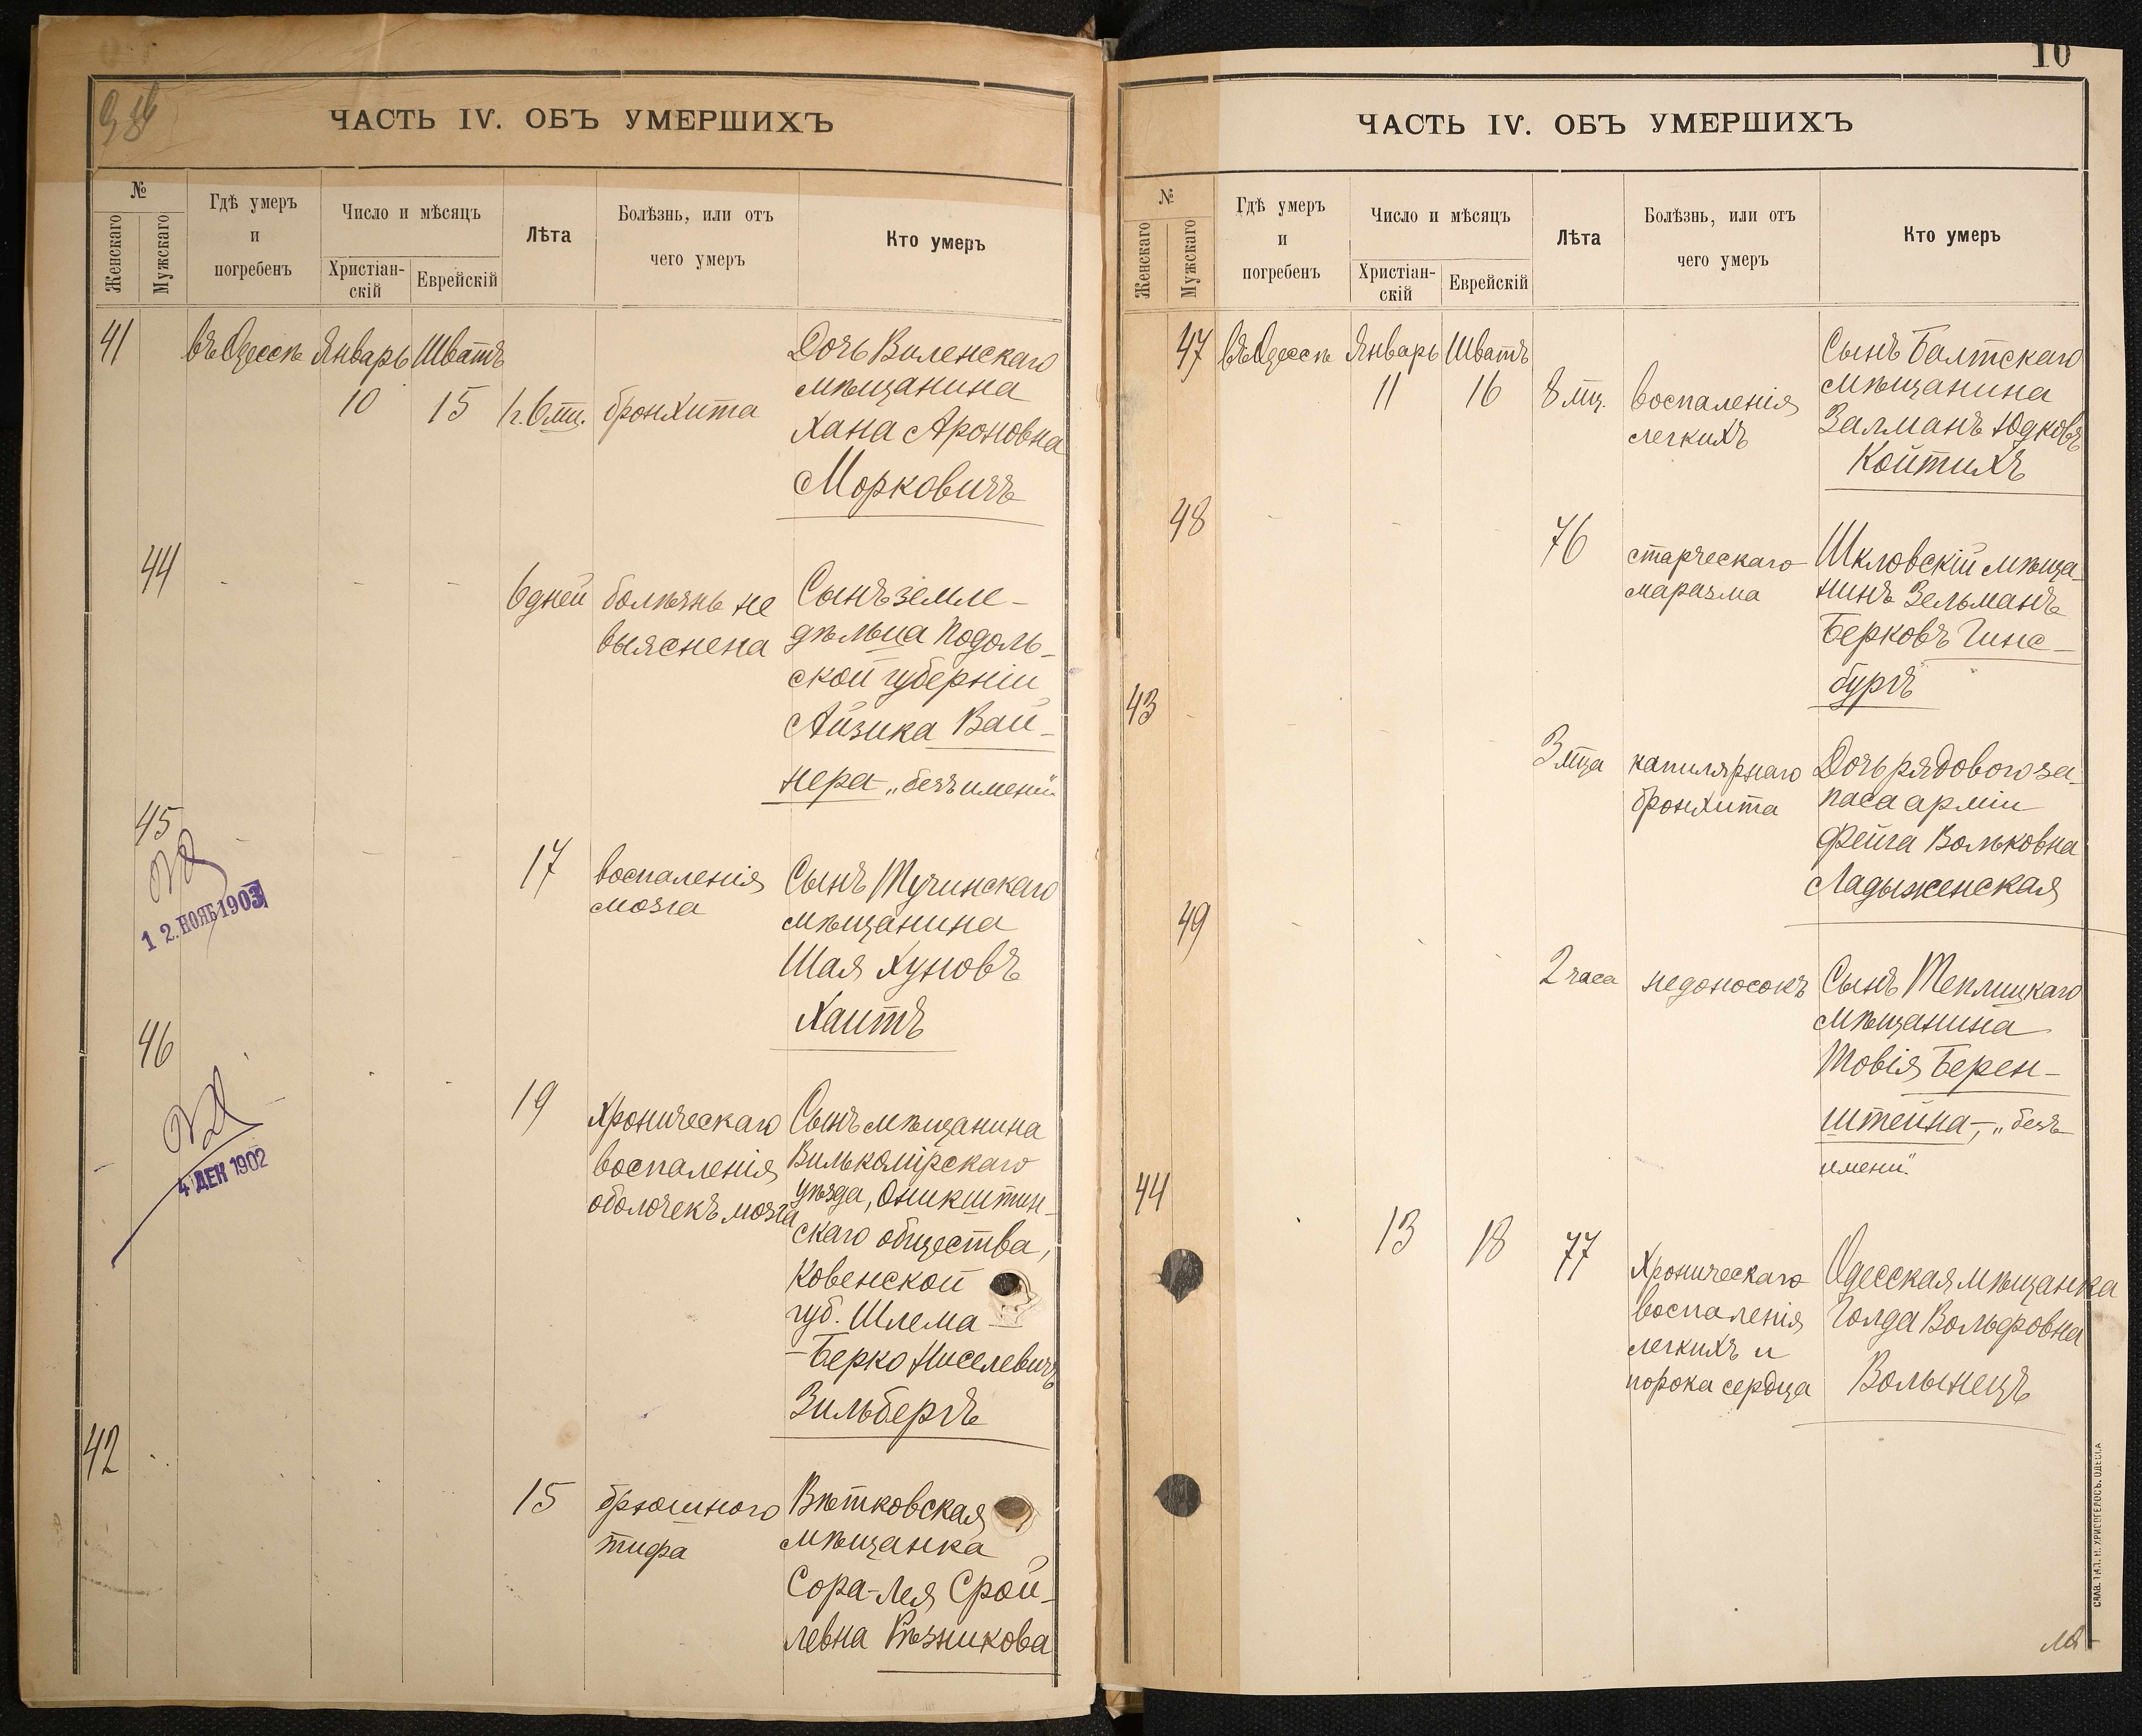 ЧАСТЬ IV. ОБЪ УМЕРШИХЪ
№
Женскаго
Мужскаго
Гдѣ умеръ
и
погребенъ
Число и мѣсяцъ
Христіан-
скій
Еврейскій
Лѣта
Болѣзнь, или отъ
чего умеръ
Кто умеръ
41 въ Одессѣ Январь Шватъ
10 15 1 г. 6 мц. бронхита
Дочь Виленскаго
мѣщанина
Хана Ароновна
Морковичъ
44
6 дней болѣзнь не
выяснена
Сынъ земле-
дѣльца Подоль-
ской губерніи
Айзика Вай-
нера „безъ имени"
45
12. НОЯБ 1903
17 воспаленія
мозга
Сынъ Тучинскаго
мѣщанина
Шая Хуновъ
Хаитъ
46
4 ДЕК 1902
19 хроническаго
воспаленія
оболочекъ мозга
Сынъ мѣщанина
Вилькомірскаго
уѣзда, Оникштин-
скаго общества,
Ковенской
губ. Шлема-
-Берко Киселевичъ
Зильбергъ
42
15 брюшного
тифа
Вѣтковская
мѣщанка
Сора-Лея Срой-
левна Рѣзникова
10
ЧАСТЬ IV. ОБЪ УМЕРШИХЪ
№
Женскаго
Мужскаго
Гдѣ умеръ
и
погребенъ
Число и мѣсяцъ
Христіан-
скій
Еврейскій
Лѣта
Болѣзнь, или отъ
чего умеръ
Кто умеръ
47 въ Одессѣ Январь Шватъ
11 16 8 мц. воспаленія
легкихъ
Сынъ Балтскаго
мѣщанина
Залманъ Юдковъ
Койтихъ
48
76 старческаго
маразма
Шкловскій мѣща-
нинъ Зельманъ
Берковъ Гинс-
бургъ
43
3 мца капилярнаго
бронхита
Дочь рядового за-
паса арміи
Фейга Вольковна
Ладыженская
49
2 часа недоносокъ
Сынъ Теплицкаго
мѣщанина
Товія Берен-
штейна-, „безъ
имени"
44
13 18 77 хроническаго
воспаленія
легкихъ и
порока сердца
Одесская мѣщанка
Голда Вольфовна
Волынецъ
СЛАВ. ТИП. Н. ХРИСОГЕЛОСЪ. ОДЕССА